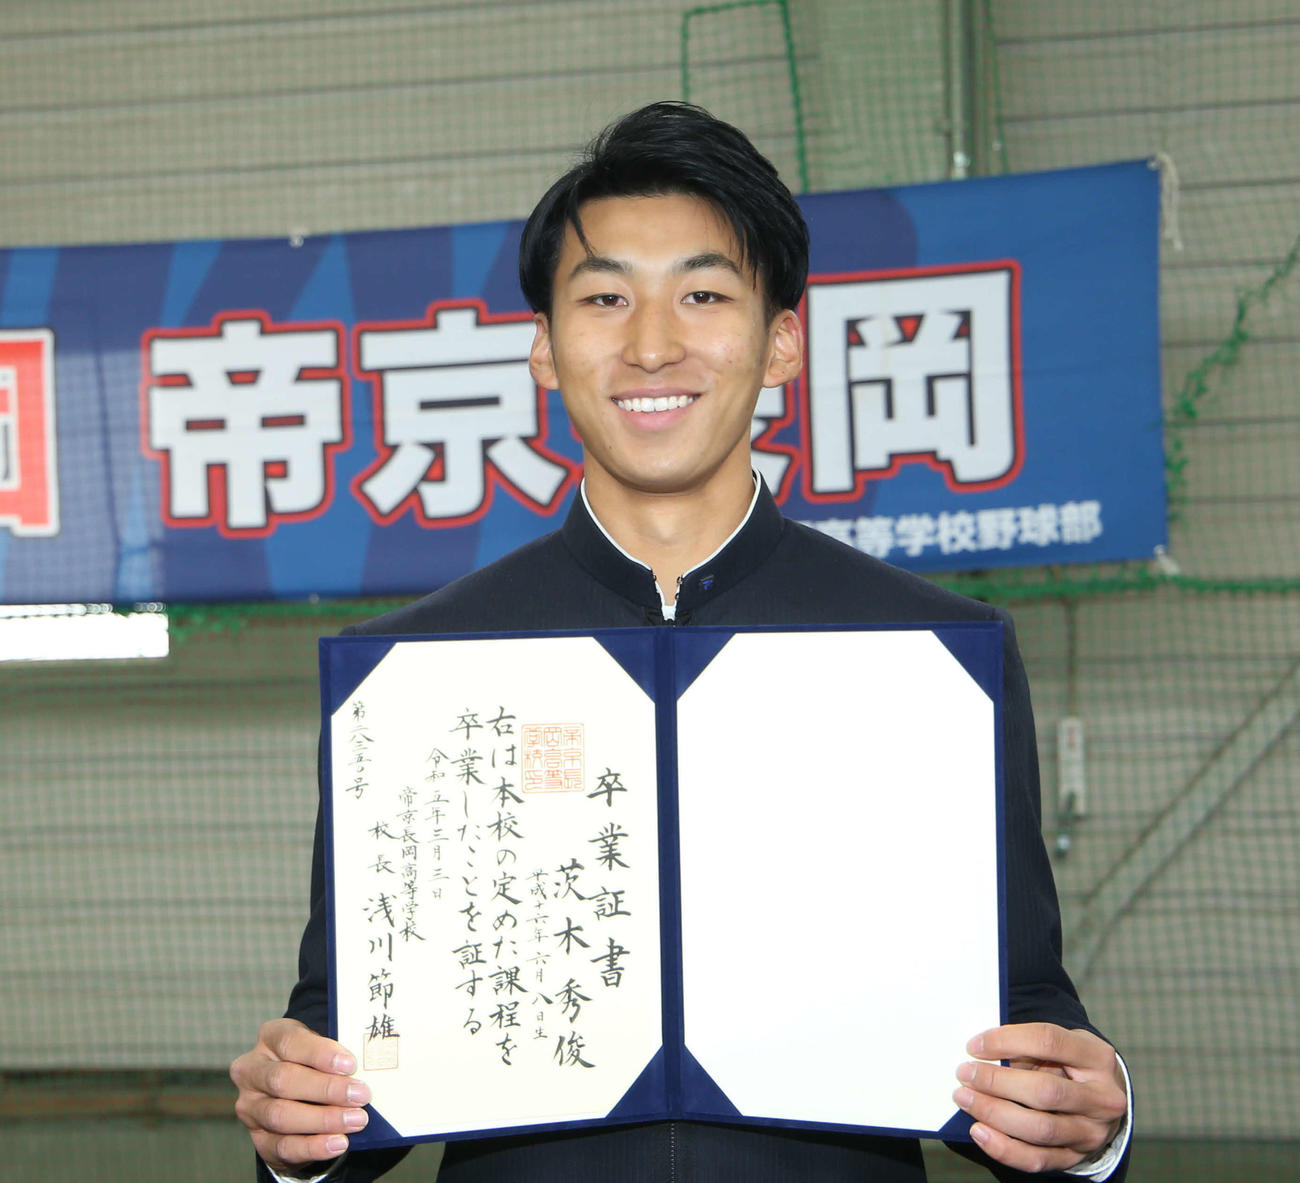 帝京長岡
高等学校野球部
卒業証書
茨木秀俊
平成十六年六月八日生
右は本校の定めた課程を
卒業したことを証する
令和五年三月三日
帝京長岡高等学校
校長 浅川節雄
第二八三五〇号